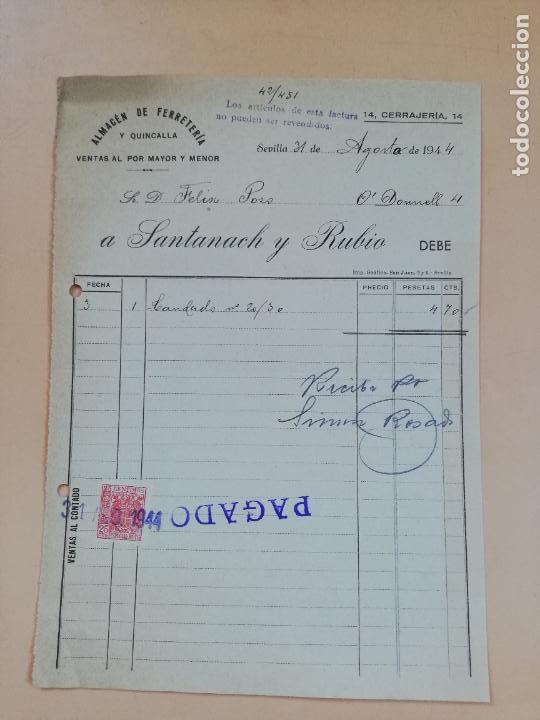 42/451
Los artículos de esta factura
no pueden ser revendidos.
ALMACÉN DE FERRETERÍA
Y QUINCALLA
VENTAS AL POR MAYOR Y MENOR
14, CERRAJERÍA, 14
Sevilla 31 de Agosto de 1944
Sr. D. Felix Poss O'Donnell 4
a Santanach y Rubio DEBE
Imp. San Juan, Sevilla
FECHA PRECIO PESETAS CTS.
3 1 Candado nº 20/30 4 70
Recibi
Simon Rosado
VENTAS AL CONTADO
PAGADO
1944
todocoleccion